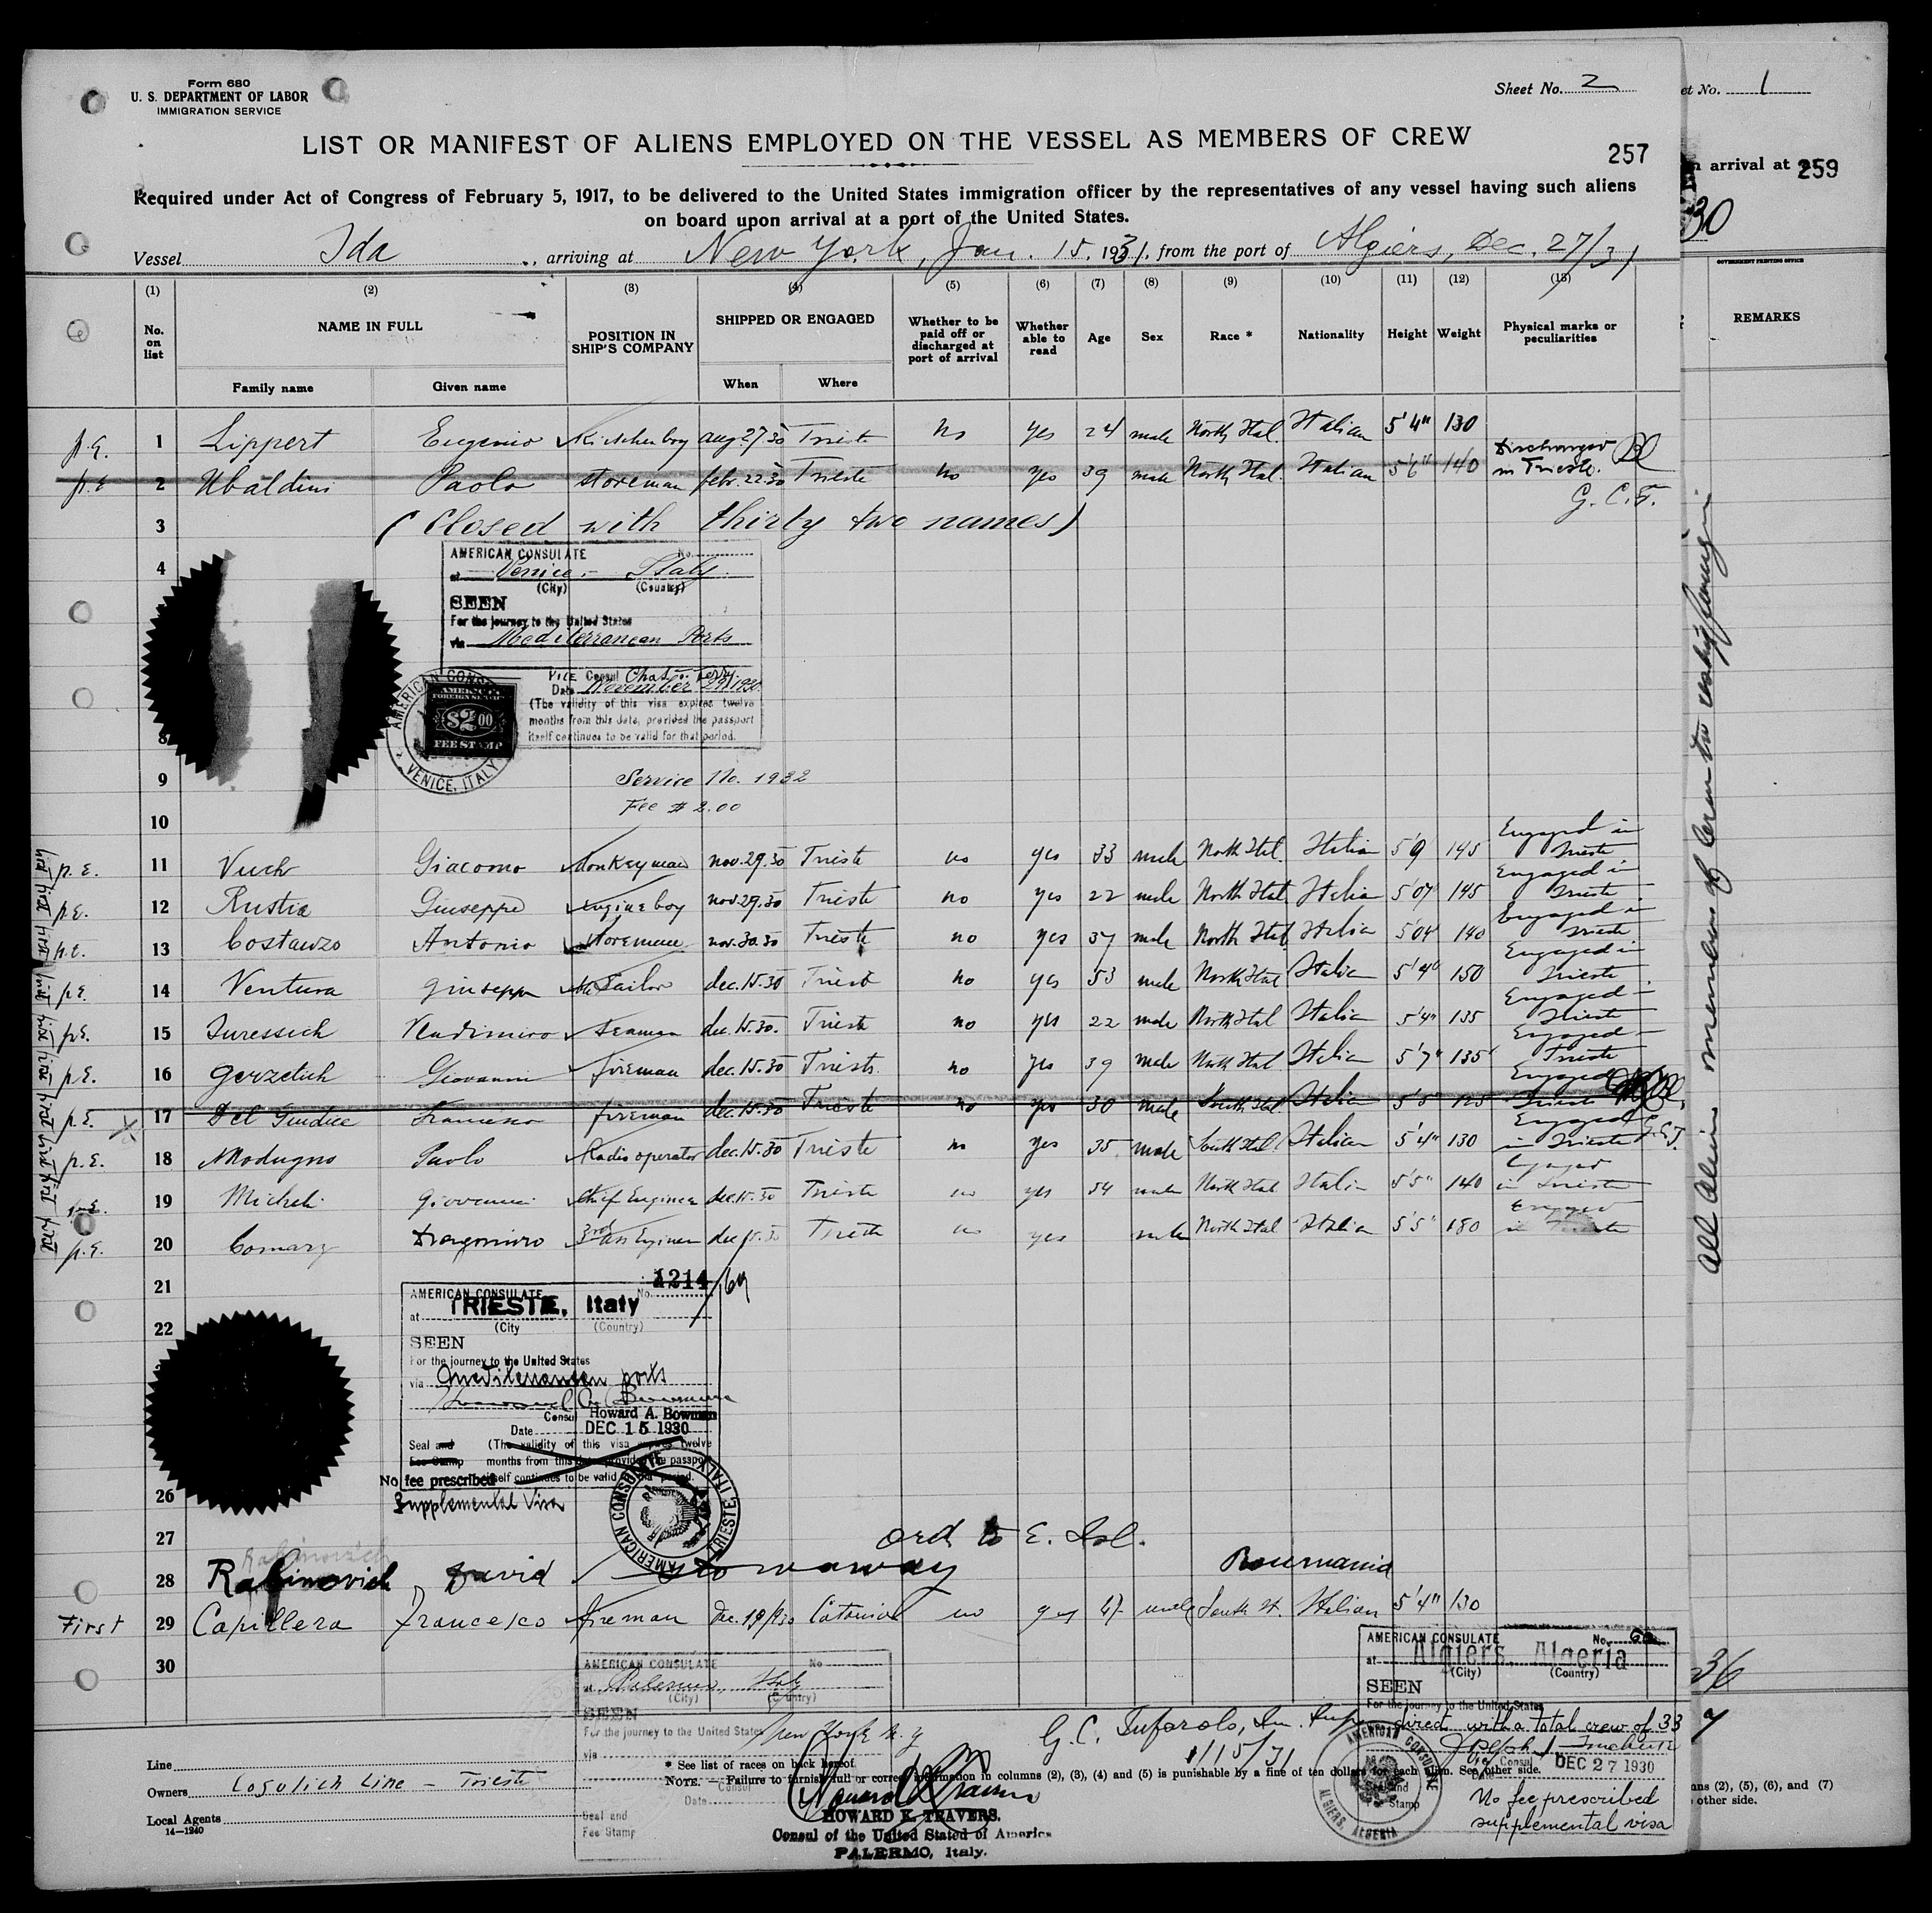 Form 680
U. S. DEPARTMENT OF LABOR
IMMIGRATION SERVICE
Sheet No. 2
et No. 1
LIST OR MANIFEST OF ALIENS EMPLOYED ON THE VESSEL AS MEMBERS OF CREW
257
n arrival at 259
Required under Act of Congress of February 5, 1917, to be delivered to the United States immigration officer by the representatives of any vessel having such aliens
on board upon arrival at a port of the United States.
30
Vessel Ida, arriving at New York, Jan. 15, 1931, from the port of Algiers, Dec. 27/31
GOVERNMENT PRINTING OFFICE
(1) (2) (3) (4) (5) (6) (7) (8) (9) (10) (11) (12) (13)
No. on list NAME IN FULL POSITION IN SHIP'S COMPANY SHIPPED OR ENGAGED Whether to be paid off or discharged at port of arrival Whether able to read Age Sex Race * Nationality Height Weight Physical marks or peculiarities REMARKS
Family name Given name When Where
p.E. 1 Lippert Eugenio Kitchen boy aug 27.30 Trieste No yes 24 male North Ital. Italian 5'4" 130
p.E 2 Ubaldini Paolo storeman febr. 22.30 Trieste No yes 39 male North Ital. Italian 5'6" 140 Discharged in Trieste.
G. C. T.
3 (Closed with thirty two names)
4
AMERICAN CONSULATE No.
at Venice - Italy
(City) (Country)
SEEN
For the journey to the United States
via Mediterranean Ports
VICE Consul
Date November 29, 1930.
(The validity of this visa expires twelve
months from this date, provided the passport
itself continues to be valid for that period.
AMERICAN FOREIGN SERVICE
$2.00
FEE STAMP
AMERICAN CONSULATE VENICE, ITALY
8
9 Service No. 1932
Fee $ 2.00
10
p.E. 11 Vuch Giacomo Donkeyman nov. 29.30 Trieste no yes 33 male North Ital. Italian 5'9 145 Engaged in Trieste
p.E. 12 Rustia Giuseppe engine boy nov. 29.30 Trieste no yes 22 male North Ital Italian 5'07 145 Engaged in Trieste
p.E. 13 Costanzo Antonio storeman nov. 30.30 Trieste no yes 37 male North Ital Italian 5'04 140 Engaged in Trieste
p.E. 14 Ventura Giuseppe Sailor dec. 15.30 Trieste no yes 53 male North Ital Italian 5'4" 150 Engaged in Trieste
p.E. 15 Suressich Vladimiro seaman dec. 15.30. Trieste no yes 22 male North Ital Italian 5'4" 135 Engaged in Trieste
p.E. 16 Gerzetich Giovanni fireman dec. 15.30 Trieste no yes 39 male North Ital Italian 5'7" 135 Engaged Trieste
p.E. X 17 Del Giudice Francesco fireman dec. 15.30 Trieste no yes 30 male South Ital Italian 5'5" 125 Engaged Trieste
G.C.T.
p.E. 18 Modugno Paolo Radio operator dec. 15.30 Trieste no yes 35 male South Ital. Italian 5'4" 130 Engaged in Trieste
p.E. 19 Micheli Giovanni Chief Engineer dec. 15.30 Trieste no yes 54 male North Ital Italian 5'5" 140 Engaged in Trieste
p.E. 20 Comarz Dragomiro 3rd Ass Engineer dec 15.30 Trieste no yes male North Ital Italian 5'5" 180 Engaged in Trieste
All aliens members of crew
21
22
1214/69
AMERICAN CONSULATE No.
at TRIESTE, Italy
(City (Country)
SEEN
For the journey to the United States
via Mediterranean ports
Howard A. Bowman
Consul Howard A. Bowman
Date DEC 15 1930
Seal and Fee Stamp
(The validity of this visa expires twelve
months from this date, provided the passport
itself continues to be valid for that period.
No fee prescribed
Supplemental Visa
AMERICAN CONSULATE TRIESTE ITALY
26
27 ord to E. Isl.
Rabinovich
28 Rabinovich, David Stowaway Roumania
First 29 Capillera Francesco fireman Dec. 19/930 Catania no yes male South It. Italian 5'4" 130
30
AMERICAN CONSULATE No
at Palermo, Italy
(City) (Country)
SEEN
For the journey to the United States
via New York N.Y
Consul
Date
Seal and
Fee Stamp
HOWARD K. TRAVERS.
Consul of the United Stated of America
PALERMO, Italy.
G. C. Tufarolo, Im. Insp.
1/15/31
AMERICAN CONSULATE No.
at Algiers, Algeria
(City) (Country)
SEEN
For the journey to the United States
direct with a total crew of 33
Vice Consul
Date DEC 27 1930
Seal and
Fee Stamp
No fee prescribed
supplemental visa
AMERICAN CONSULATE ALGIERS, ALGERIA
36
Line
Owners Cosulich Line - Trieste
Local Agents
14-1240
* See list of races on back hereof.
NOTE. — Failure to furnish full or correct information in columns (2), (3), (4) and (5) is punishable by a fine of ten dollars for each alien. See other side.
ns (2), (5), (6), and (7)
other side.